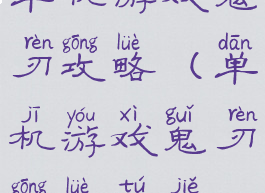 单机游戏鬼
rèn gōng lüè dān
刃攻略(单
jī yóu xì guǐ rèn
机游戏鬼刃
gōng lüè tú jiě